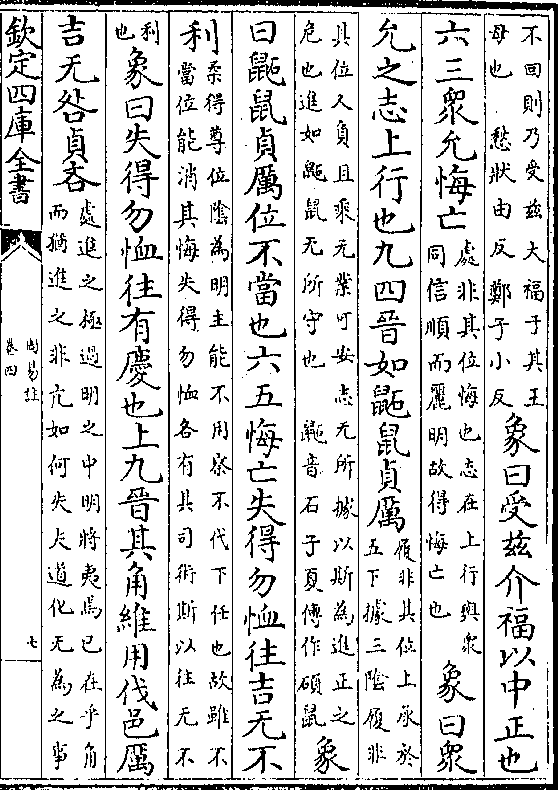 不回則乃受兹大福于其王
母也　愁狀由反鄭子小反
象曰受兹介福以中正也
六三衆允悔亡
處非其位悔也志在上行與衆
同信順而麗明故得悔亡也
象曰衆
允之志上行也九四晉如鼫鼠貞厲
履非其位上承於
五下據三隂履非
其位又負且乘无業可安志无所據以斯為進正之
危也進如鼫鼠无所守也　鼫音石子夏傳作碩鼠
象
曰鼫鼠貞厲位不當也六五悔亡失得勿恤往吉无不
利
柔得尊位隂為明主能不用察不代下任也故雖不
當位能消其悔失得勿恤各有其司術斯以往无不
利
也
象曰失得勿恤往有慶也上九晉其角維用伐邑厲
吉无咎貞吝
處進之極過明之中明將夷焉已在乎角
而猶進之非亢如何失夫道化无為之事
欽定四庫全書
周易註
卷四
七